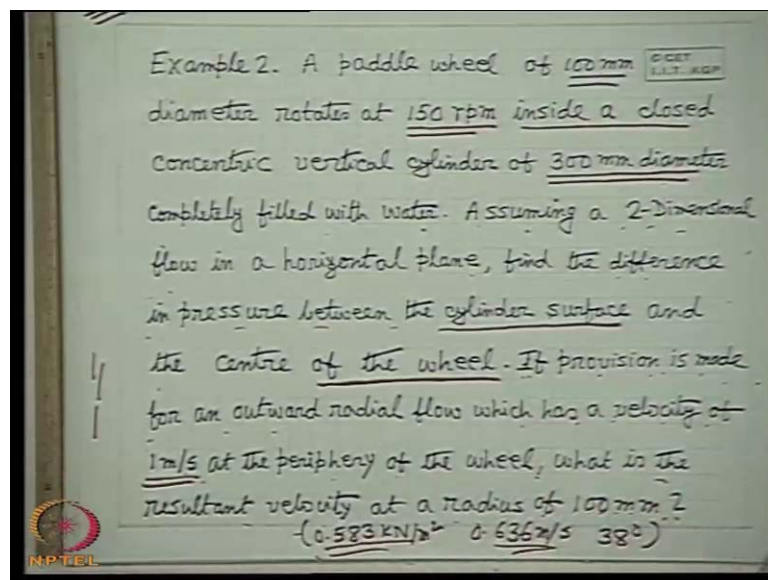 Example 2. A paddle wheel of 100 mm
diameter rotates at 150 rpm inside a closed
concentric vertical cylinder of 300 mm diameter
completely filled with water. Assuming a 2-Dimensional
flow in a horizontal plane, find the difference
in pressure between the cylinder surface and
the centre of the wheel. If provision is made
for an outward radial flow which has a velocity of
1 m/s at the periphery of the wheel, what is the
resultant velocity at a radius of 100 mm?
(0.583 KN/m² 0.636 m/s 38°)
I.I.T. KGP
NPTEL